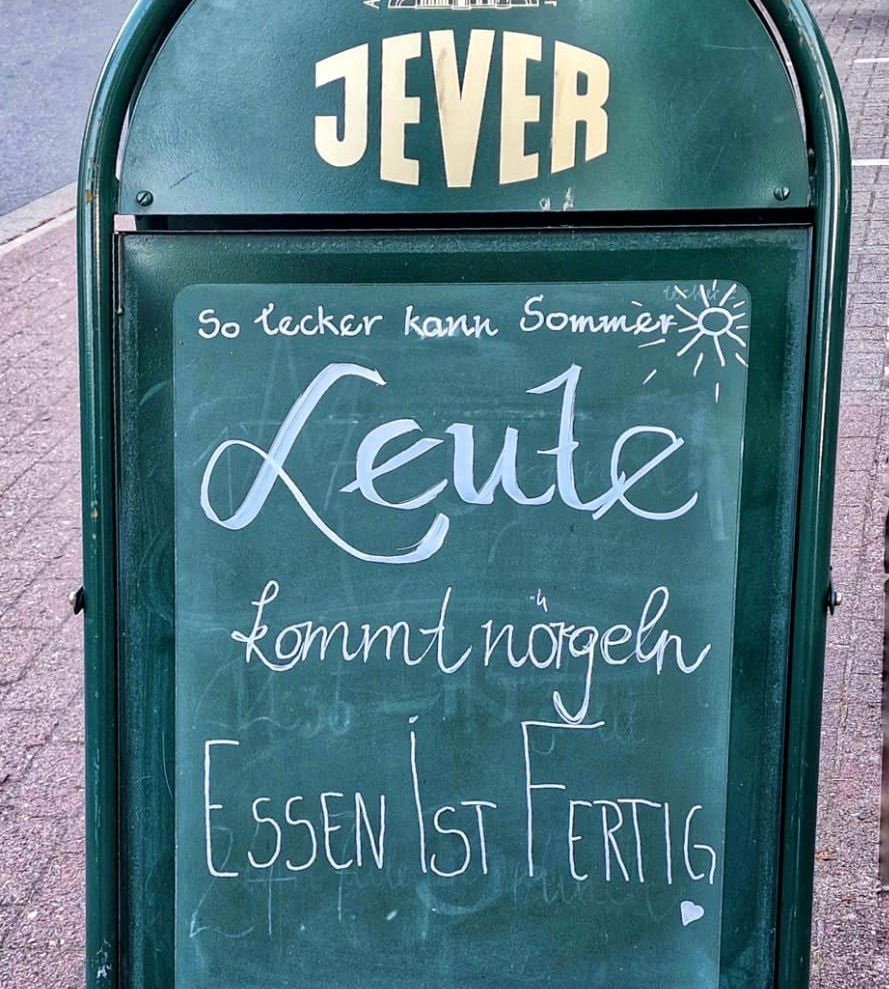 JEVER
So lecker kann Sommer
Leute
kommt nörgeln
ESSEN IST FERTIG